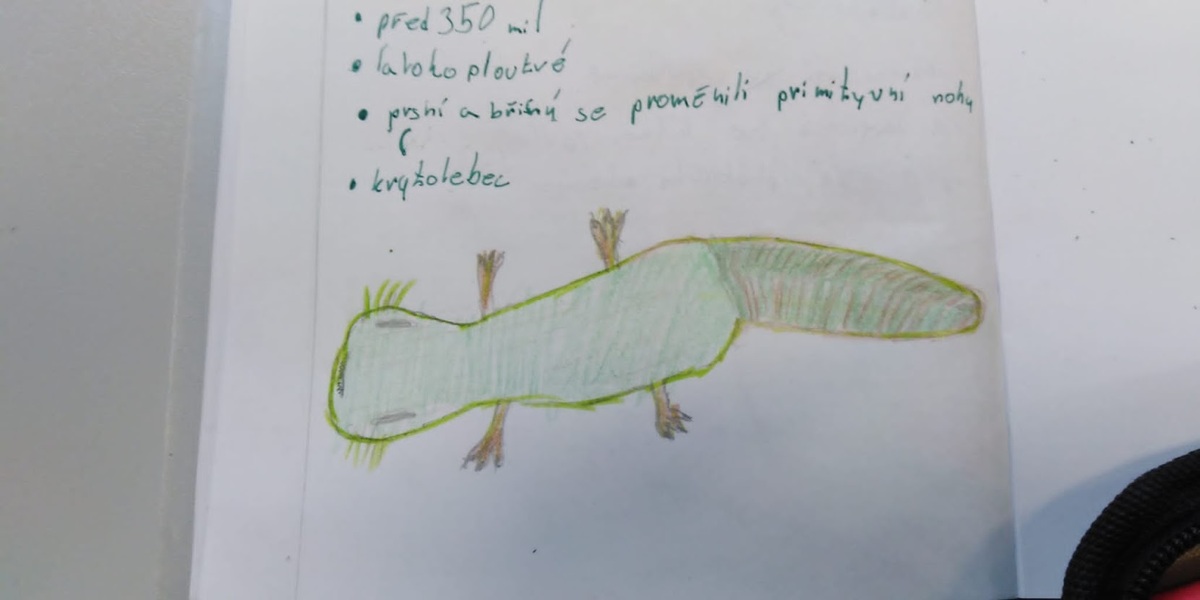 • před 350 mil
• lalokoploutvé
• prsní a břišný se proměnili primityvní nohy
• krytolebec